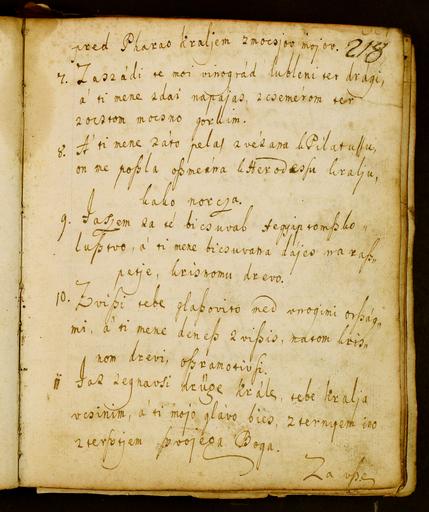 pred Pharao kraljem zmocsjov mojov. 218
7. Zaszádi te moi vinográd lubleni ter dragi,
á ti mene zdai napájas, zcsemérom ter
zocstom mocsno gorkim.
8. A' ti mene záto pelas zvézana k Pilatussu,
on me possla ossmeána k Herodessu kralju,
kako norcza.
9. Ja szem za té bicsuval Aegyiptomszko
lusztvo, á ti mene bicsuvana dájes na rasz,
petje, krisnomu drevo.
10. Zvissi tebe glaszovito med vnogimi orszag,
mi, á ti mene dénesz zvissis, na tom kris,
nom drevi, oszramotivsi.
11 Jas zegnavsi druge krále, tebe kralja
vcsinim, á ti mojo glavo bies, zternyem ino
zterstjem szvojega Boga.
Za vsze